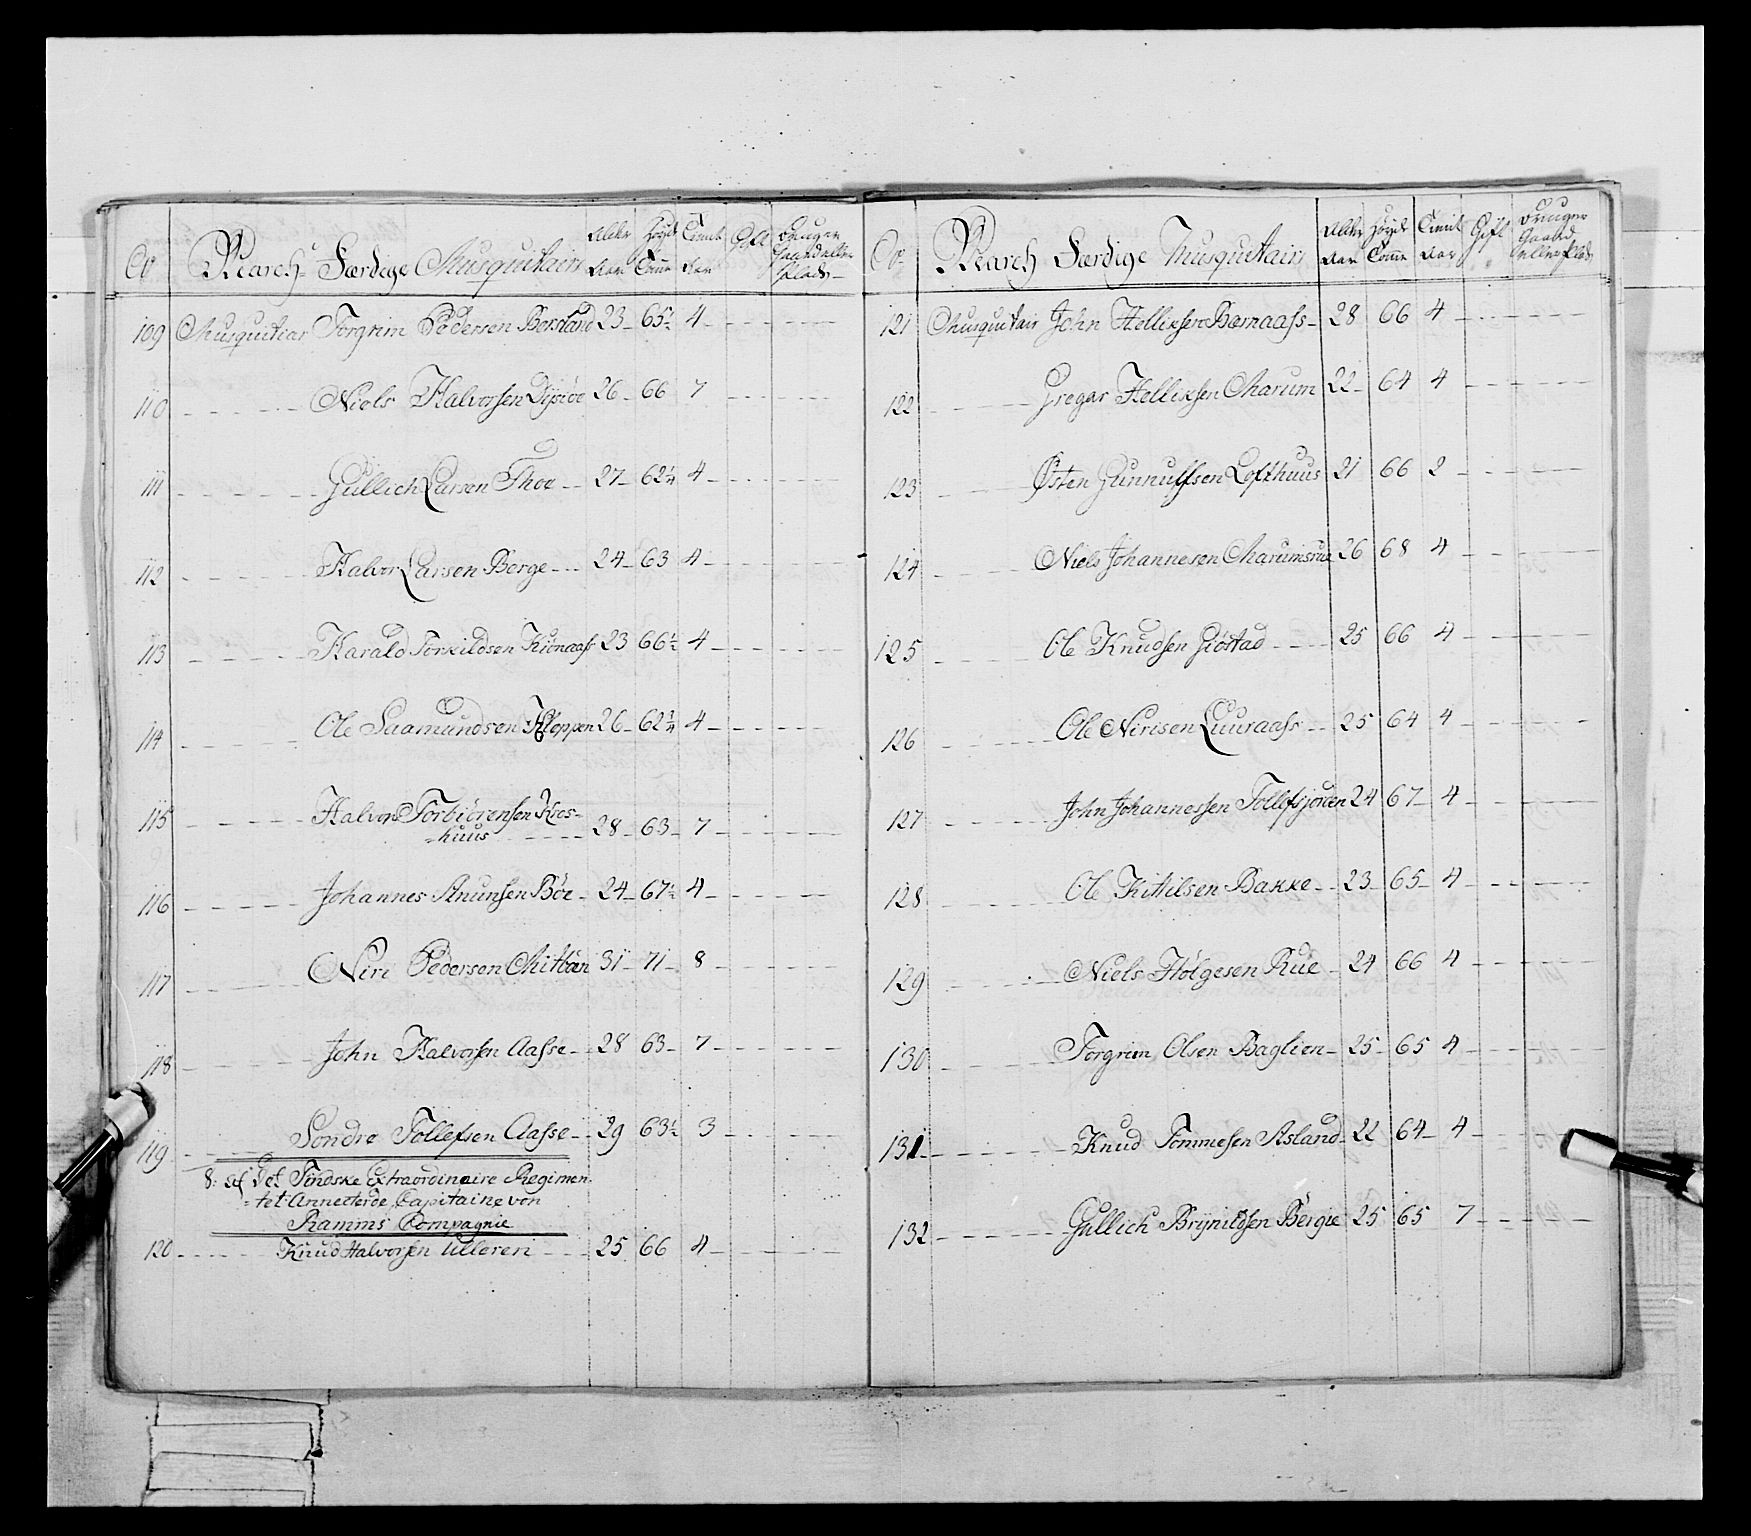 No March Færdige Musquitairi Alder Aar Høyde Tomm Tient Aar Gift Bruger Gaard eller Plads
109 Musquitiar Torgrim Pedersen Borsland 23 65½ 4
110 Niels Halvorsen 26 66 7
111 Gullich Larsen Thoe 27 62¼ 4
112 Halvor Larsen Berge 24 63 4
113 Harald Torkildsen Kiönaass 23 66½ 4
114 Ole Saamundsen Kloppen 26 62¼ 4
115 Halvor Torbiörensen Kros-
=huus 28 63 7
116 Johannes Anunsen Böe 24 67½ 4
117 Niri Pedersen Mitbøen 31 71 8
118 John Halvorsen Aasse 28 63 7
119 Söndre Tollefsen Aasse 29 63½ 3
8: af Det Tindske Extraordinaire Regimen
=tet Annecterde Capitaine von
Ramms Compagnie
120 Knud Halvorsen Ulleren 25 66 4
No March Færdige Musquitairi Alder Aar Høyde Tomm Tient Aar Gift Bruger Gaard eller Plads
121 Musquitair John Helliksen Bærnaass 28 66 4
122 Gregar Helliksen Marum 22 64 4
123 Østen Gunnulfsen Lofthuus 21 66 2
124 Niels Johannesen Marumsrue 26 68 4
125 Ole Knudsen Giöstad 25 66 4
126 Ole Nirisen Luuraass 25 64 4
127 John Johannessen Tollefsjorden 24 67 4
128 Ole Kittilsen Bakke 23 65 4
129 Niels Hölgesen Rue 24 66 4
130 Torgrim Olsen Baglien 25 65 4
131 Knud Tommesen Asland 22 64 4
132 Gullich Brynildsen Bergie 25 65 7